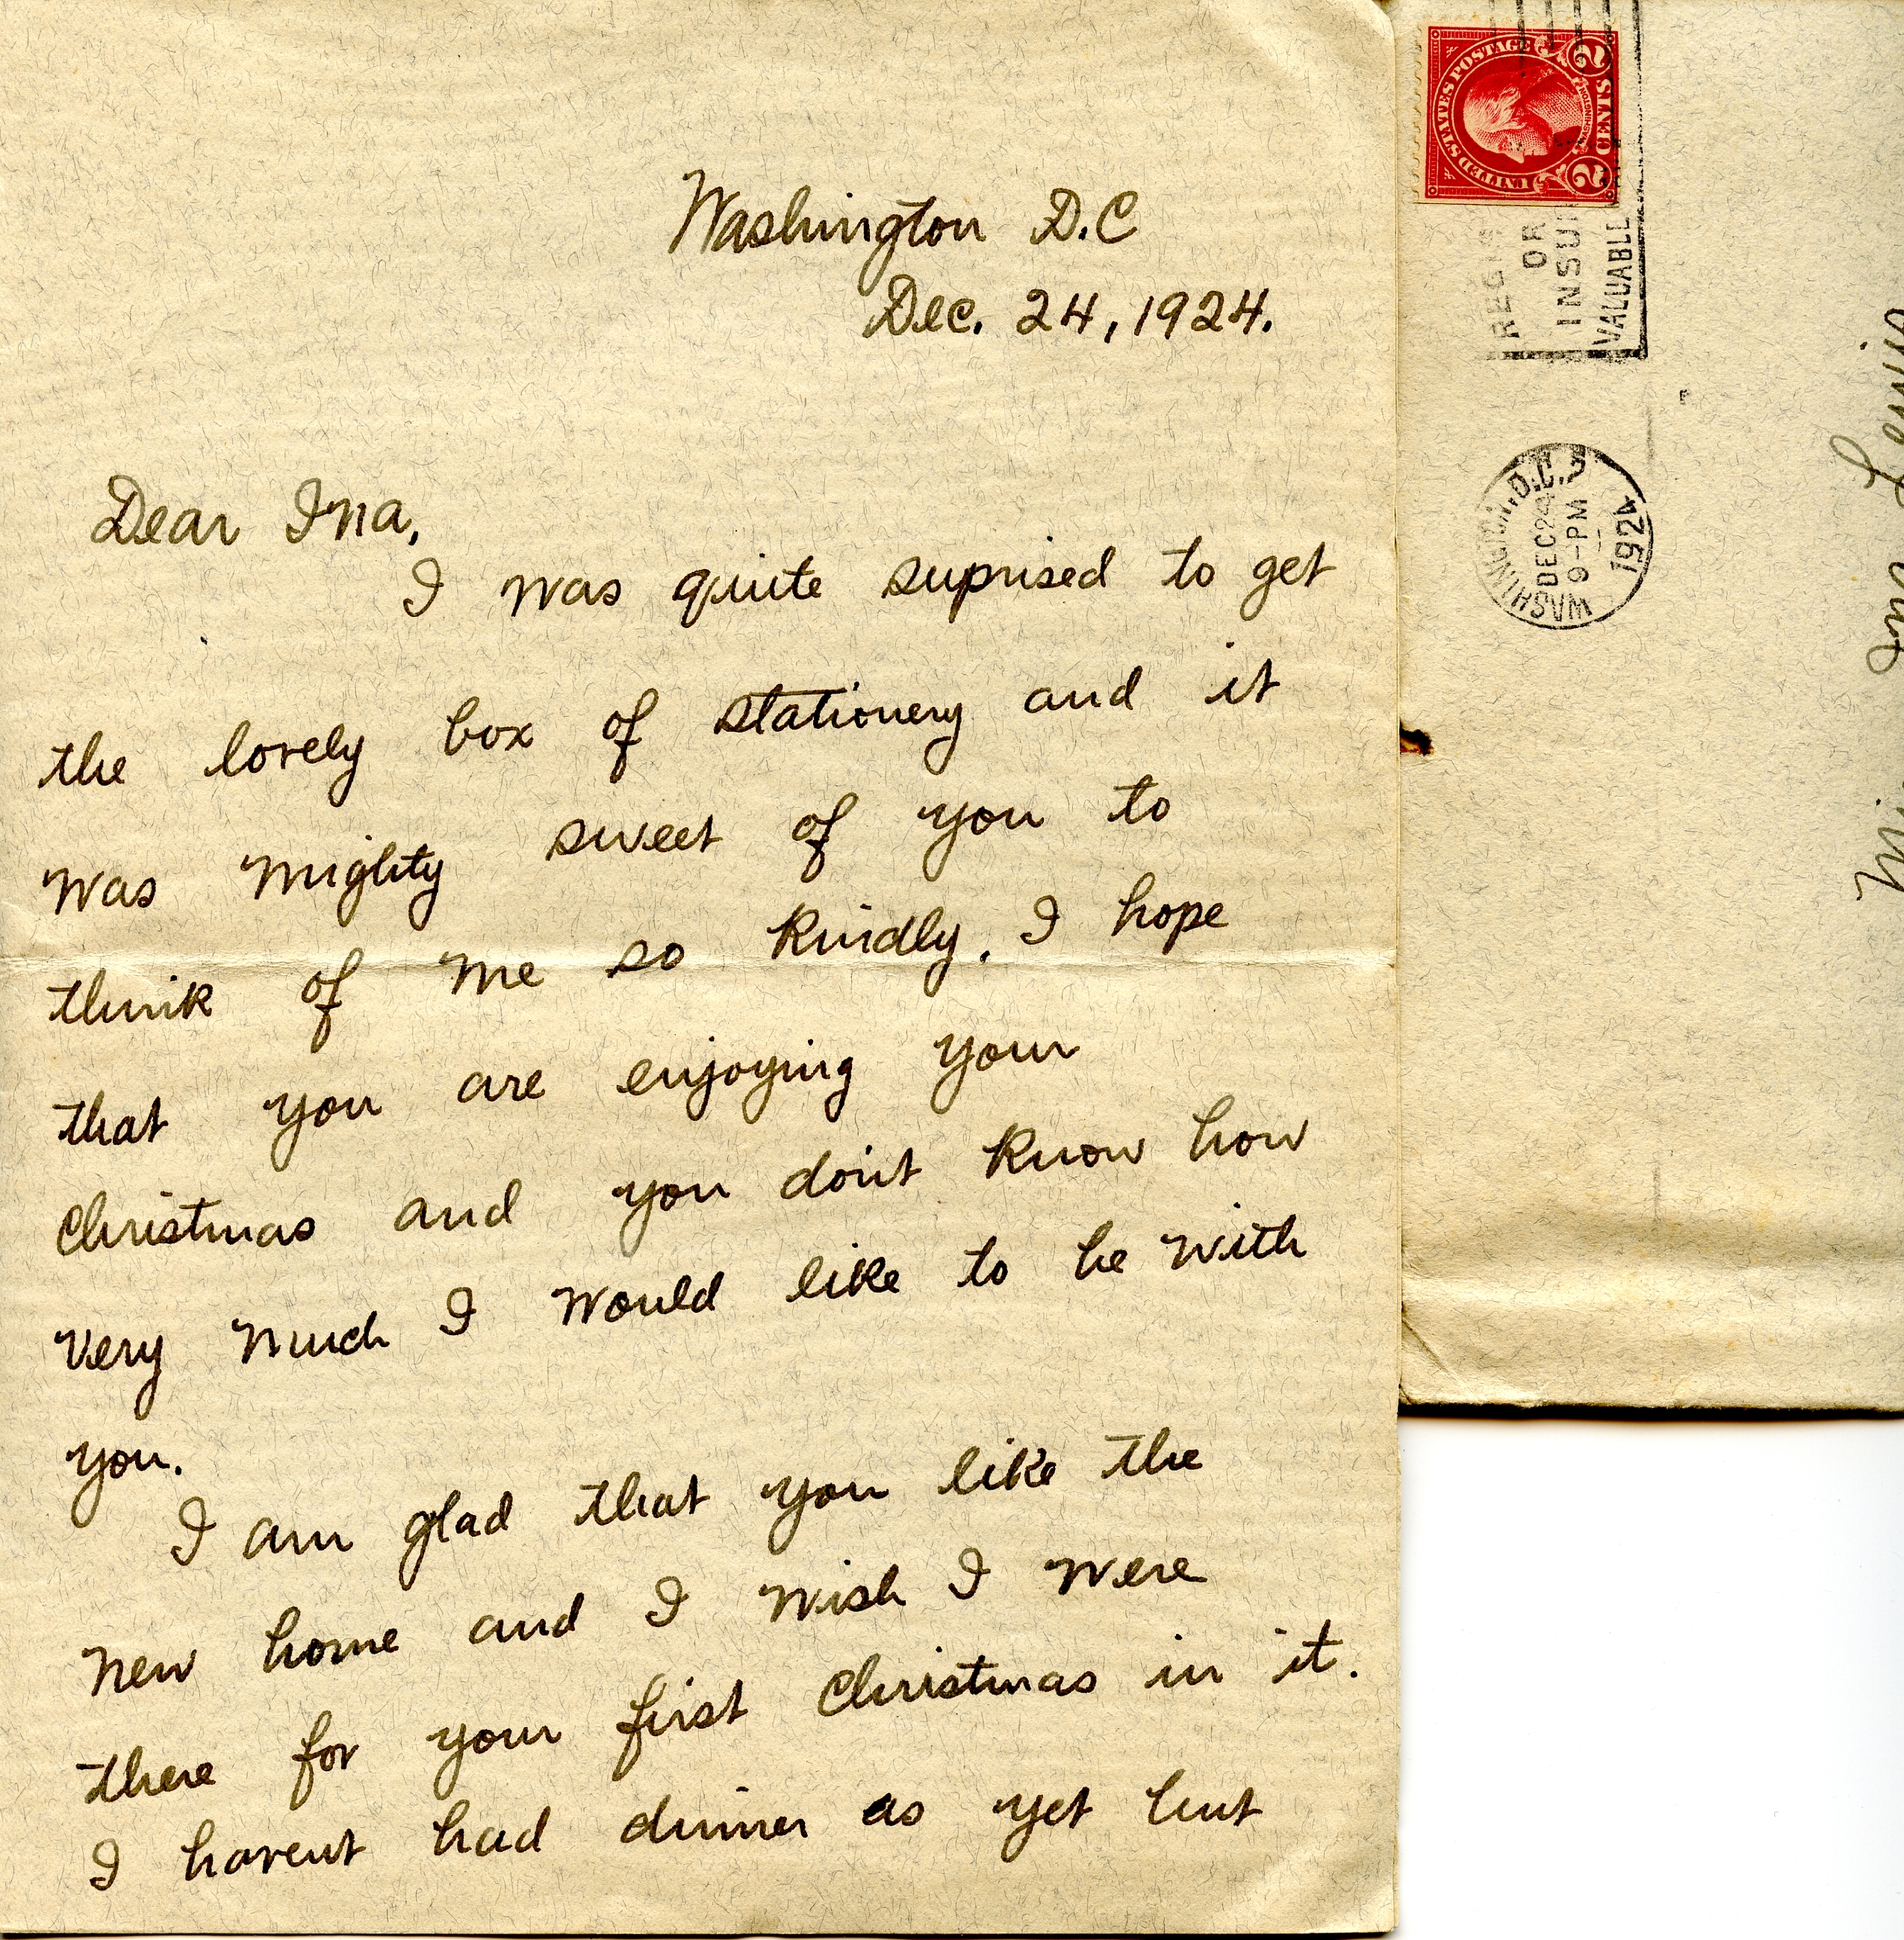 Washington D.C
Dec. 24, 1924.
Dear Ina,
I was quite suprised to get
the lovely box of stationery and it
was mighty sweet of you to
think of me so kindly. I hope
that you are enjoying your
Christmas and you don't know how
very much I would like to be with
you.
I am glad that you like the
new home and I wish I were
there for your first Christmas in it.
I havent had dinner as yet but
UNITED STATES POSTAGE
2 CENTS 2
OR
VALUABLE
WASHINGTON, D.C.
DEC 24
9-PM
1924
Ina